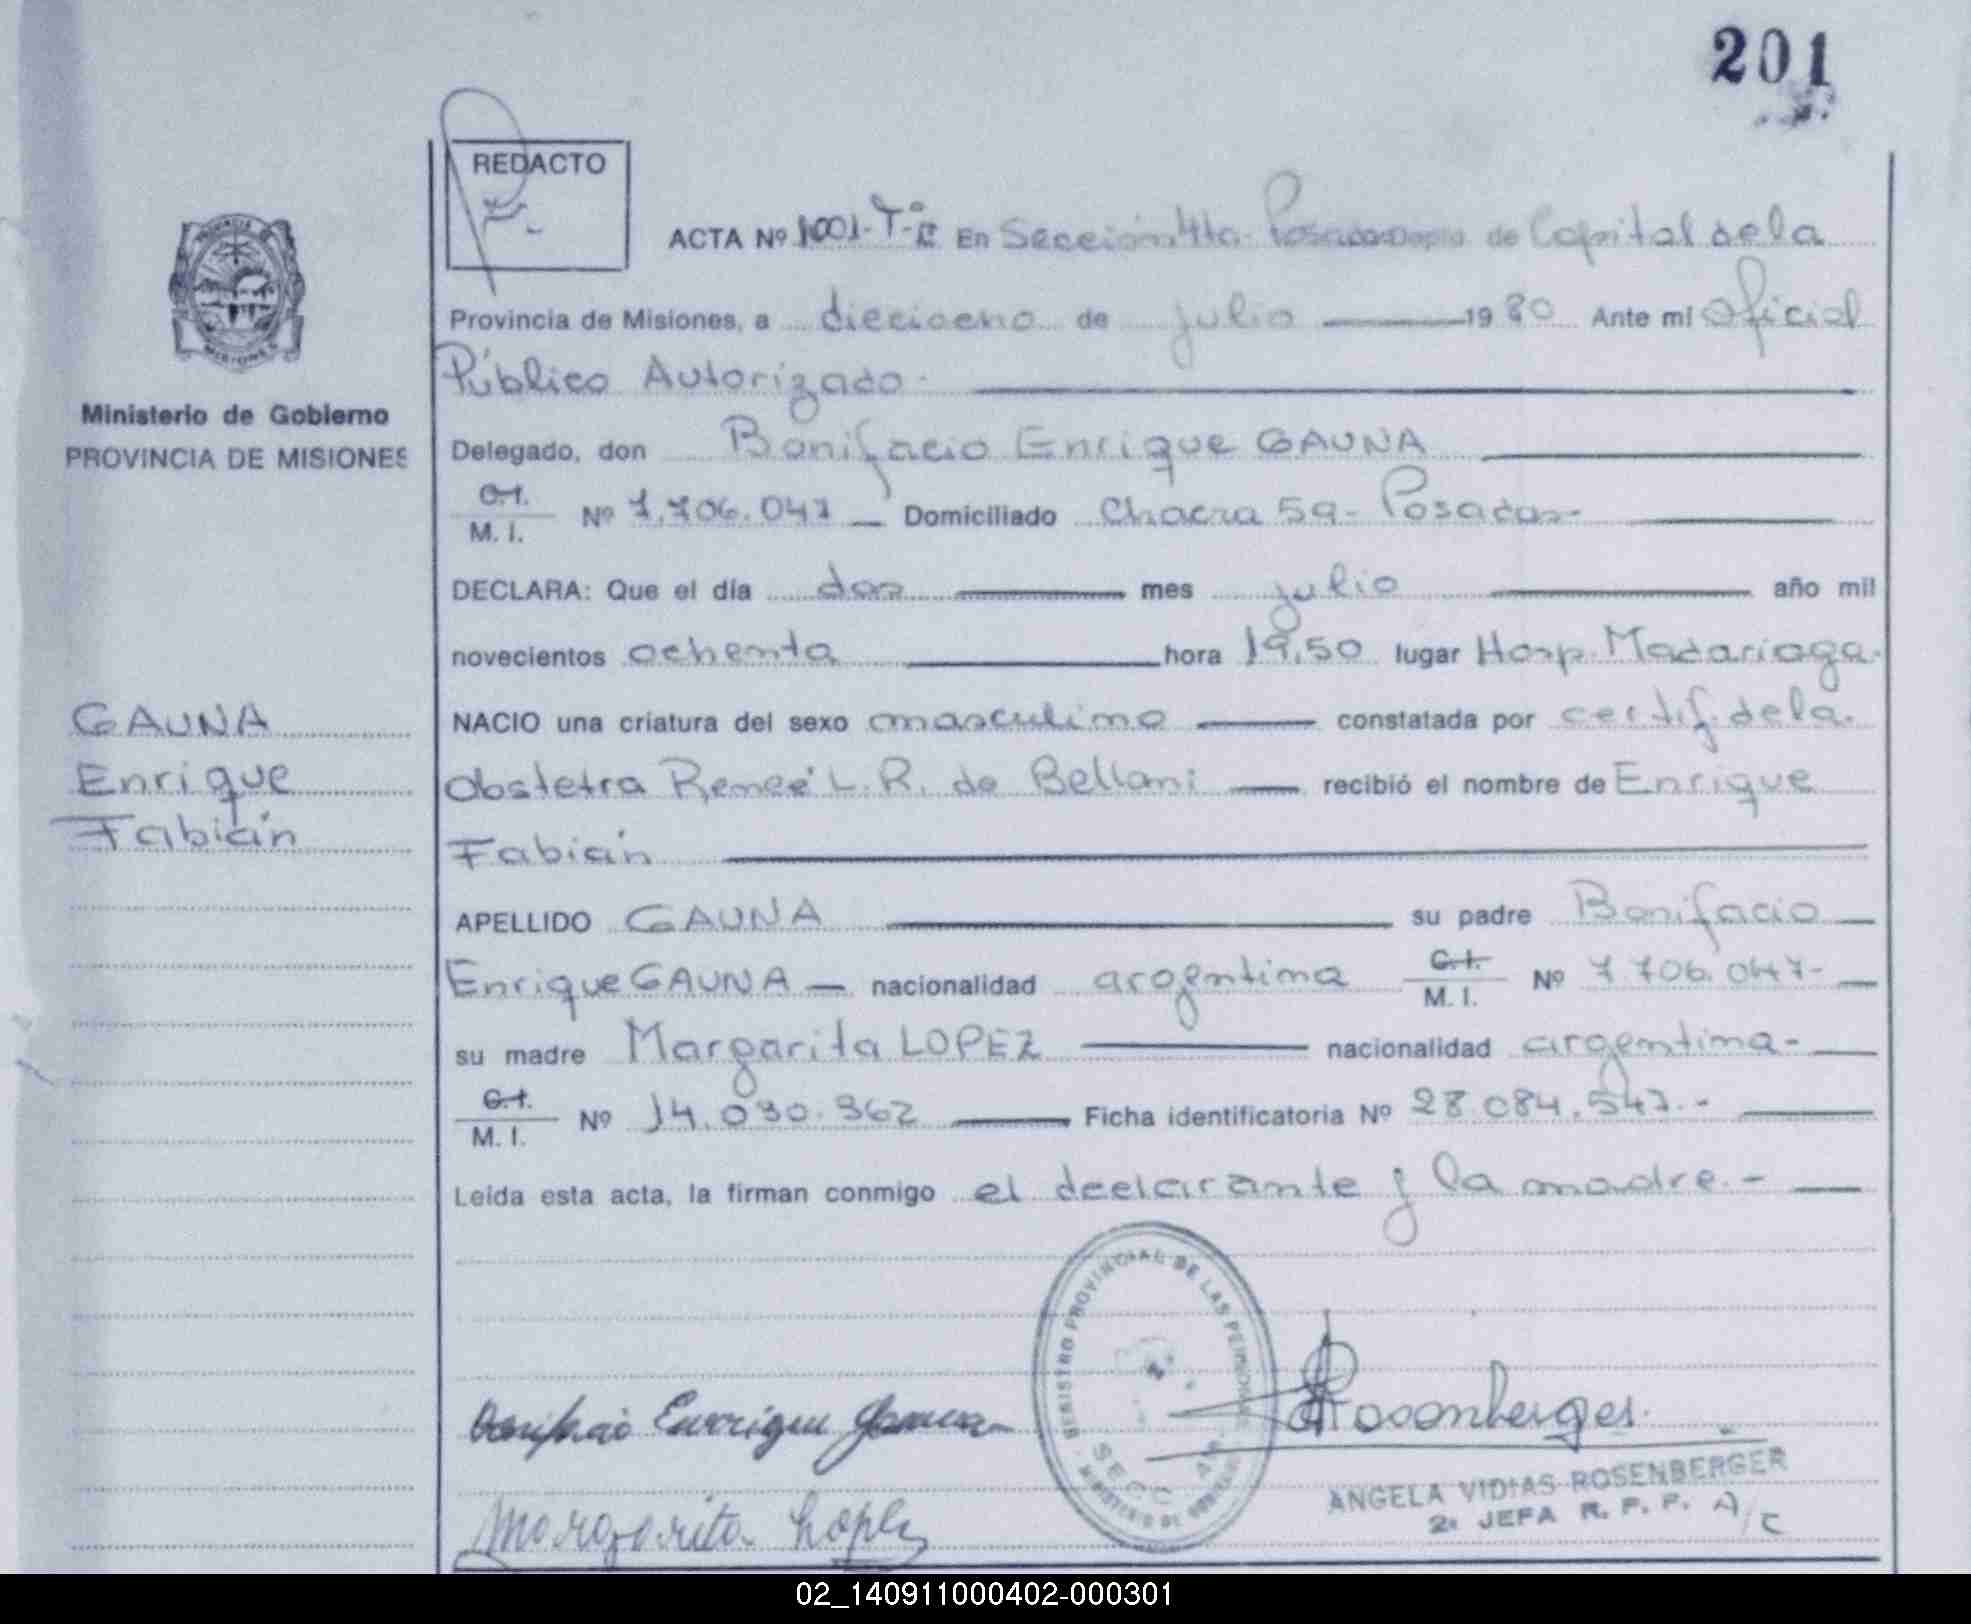 201
REDACTO
ACTA Nº 1001-Tº-II En Sección 4ta. Posadas Depto de Capital de la
Provincia de Misiones, a dieciocho de julio 1980 Ante mí Oficial
Público Autorizado.
Ministerio de Gobierno
PROVINCIA DE MISIONES
Delegado, don Bonifacio Enrique GAUNA
C.I. M. I. Nº 7.706.047 Domiciliado Chacra 59 - Posadas-
DECLARA: Que el día dos mes julio año mil
novecientos ochenta hora 19,50 lugar Hosp. Madariaga.
GAUNA
Enrique
Fabián
NACIO una criatura del sexo masculino constatada por certif. de la
Obstetra Reneé L. R. de Bellani recibió el nombre de Enrique
Fabián
APELLIDO GAUNA su padre Bonifacio
Enrique GAUNA nacionalidad argentina C.I. M. I. Nº 7.706.047-
su madre Margarita LOPEZ nacionalidad argentina-
C.I. M. I. Nº 14.090.962 Ficha identificatoria Nº 28.084.547.-
Leída esta acta, la firman conmigo el declarante y la madre.-
REGISTRO PROVINCIAL DE LAS PERSONAS
SECC. 4ta.
Bonifacio Enrique Gauna
Rosenberger
Margarita Lopez
ANGELA VIDIAS ROSENBERGER
2ª JEFA R. P. P. A/C
MISIONES
02_140911000402-000301